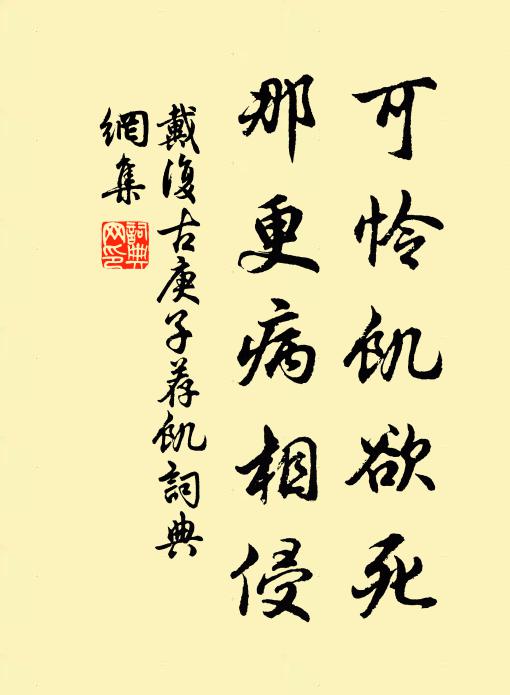 可怜飢欲死
那更病相侵
戴復古庚子荐飢詞典
網集
詞典網印